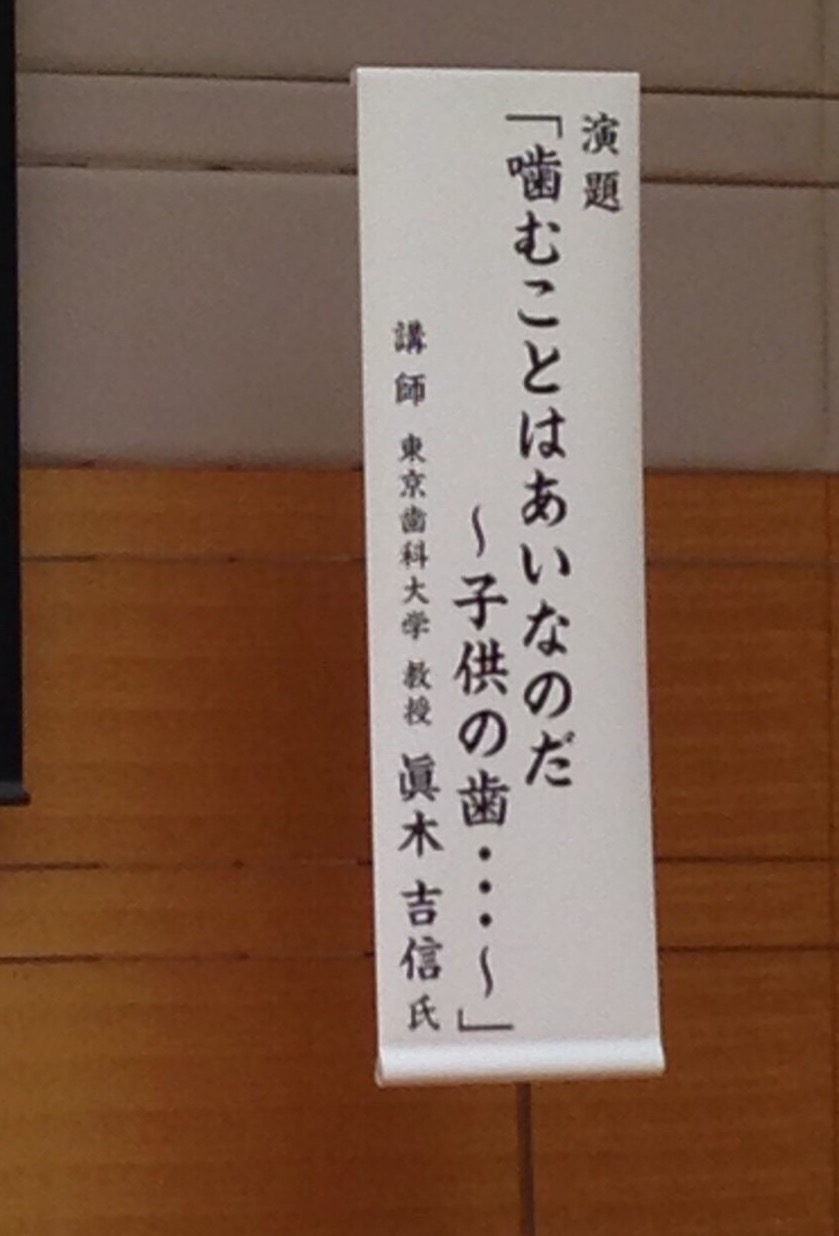 演題
「噛むことはあいなのだ
～子供の歯・・・～」
講師 東京歯科大学 教授 眞木 吉信 氏